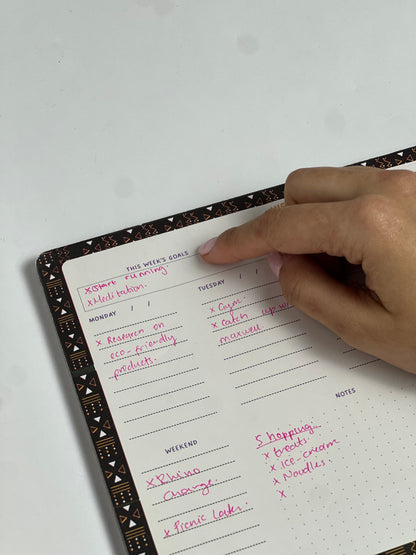 THIS WEEK'S GOALS
x Start running
x Meditation.
MONDAY / /
TUESDAY / /
x Research on
eco-friendly
products.
x Gym.
x Catch up w/
maxwell
NOTES
WEEKEND
x Rhino
Change.
x Picnic Later.
Shopping...
x Treats
x ice-cream
x Noodles.
x